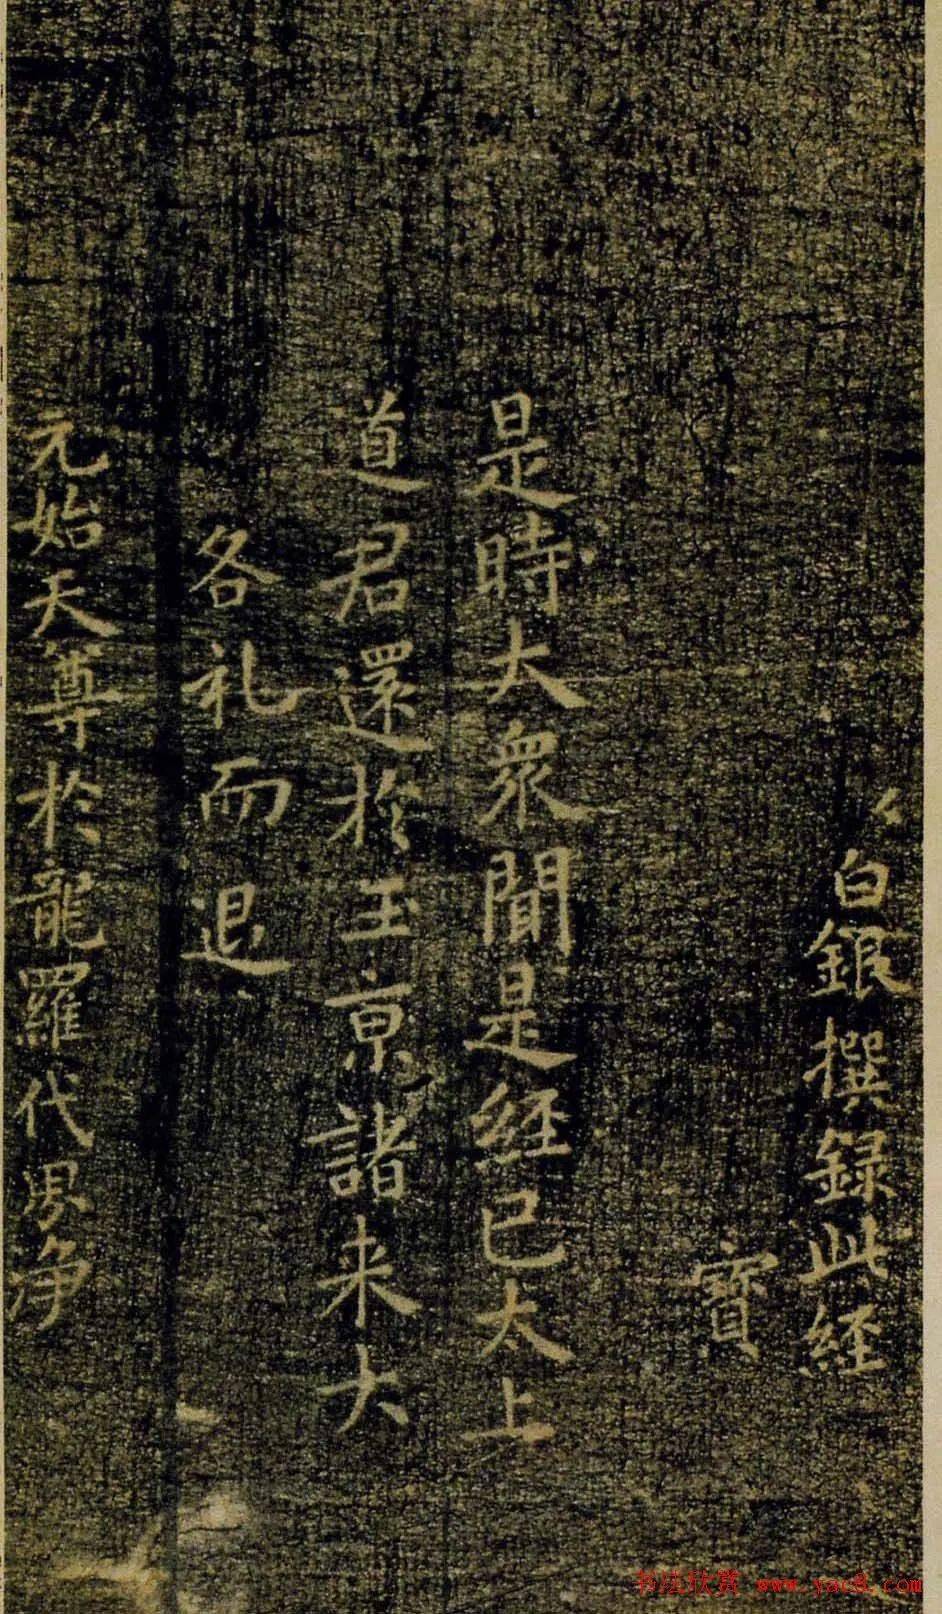 白銀撰録此經
寶
是時大衆聞是經已太上
道君還於玉京諸来大
各礼而退
元始天尊於龍羅代界净
书法欣赏 www.yac8.com